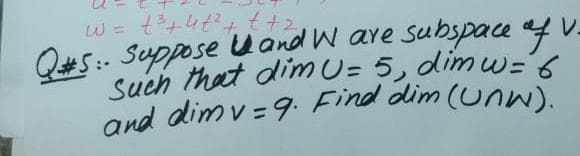 w = t³+4t²+t+2
Q#5:. Suppose U and W are subspace of V.
Such that dim U = 5, dim w = 6
and dim v = 9. Find dim (U∩W).